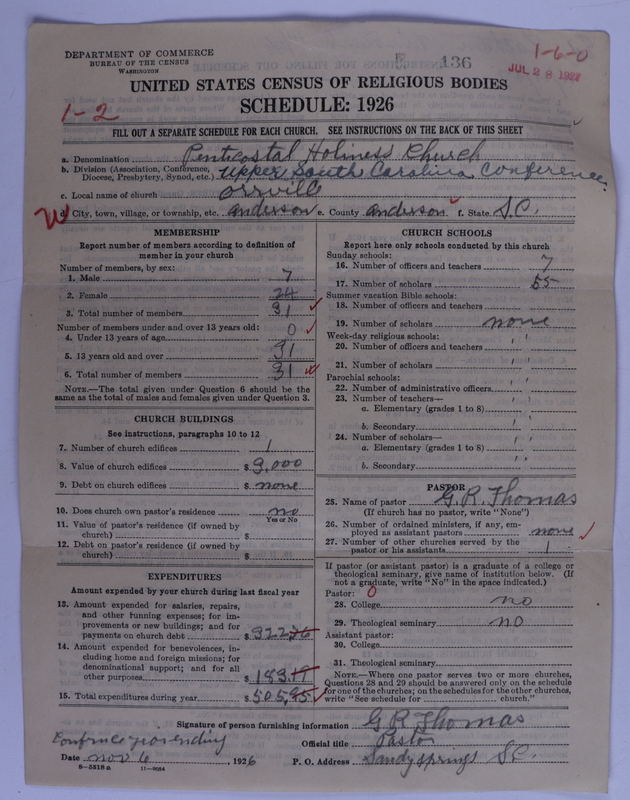 DEPARTMENT OF COMMERCE
BUREAU OF THE CENSUS
WASHINGTON
136
1-6-0
JUL 28 1927
UNITED STATES CENSUS OF RELIGIOUS BODIES
SCHEDULE: 1926
1-2
FILL OUT A SEPARATE SCHEDULE FOR EACH CHURCH. SEE INSTRUCTIONS ON THE BACK OF THIS SHEET
a. Denomination Penticostal Holiness Church
b. Division (Association, Conference, Diocese, Presbytery, Synod, etc.) Upper South Carolina Conference
c. Local name of church Orrville
d. City, town, village, or township, etc. Anderson e. County Anderson f. State S.C.
MEMBERSHIP
Report number of members according to definition of
member in your church
Number of members, by sex:
1. Male 7
2. Female 24
3. Total number of members 31
Number of members under and over 13 years old:
4. Under 13 years of age 0
5. 13 years old and over 31
6. Total number of members 31
NOTE.—The total given under Question 6 should be the
same as the total of males and females given under Question 3.
CHURCH BUILDINGS
See instructions, paragraphs 10 to 12
7. Number of church edifices 1
8. Value of church edifices $ 3,000
9. Debt on church edifices $ none
10. Does church own pastor's residence no
Yes or No
11. Value of pastor's residence (if owned by
church) $
12. Debt on pastor's residence (if owned by
church) $
EXPENDITURES
Amount expended by your church during last fiscal year
13. Amount expended for salaries, repairs,
and other running expenses; for im-
provements or new buildings; and for
payments on church debt $ 322.76
14. Amount expended for benevolences, in-
cluding home and foreign missions; for
denominational support; and for all
other purposes $ 183.19
15. Total expenditures during year $ 505.95
CHURCH SCHOOLS
Report here only schools conducted by this church
Sunday schools:
16. Number of officers and teachers 7
17. Number of scholars 55
Summer vacation Bible schools:
18. Number of officers and teachers
19. Number of scholars none
Week-day religious schools:
20. Number of officers and teachers
21. Number of scholars
Parochial schools:
22. Number of administrative officers
23. Number of teachers—
a. Elementary (grades 1 to 8)
b. Secondary
24. Number of scholars—
a. Elementary (grades 1 to 8)
b. Secondary
PASTOR
25. Name of pastor G. R. Thomas
(If church has no pastor, write "None")
26. Number of ordained ministers, if any, em-
ployed as assistant pastors none
27. Number of other churches served by the
pastor or his assistants 1
If pastor (or assistant pastor) is a graduate of a college or
theological seminary, give name of institution below. (If
not a graduate, write "No" in the space indicated.)
Pastor: 0
28. College no
29. Theological seminary no
Assistant pastor:
30. College
31. Theological seminary
NOTE.—Where one pastor serves two or more churches,
Questions 28 and 29 should be answered only on the schedule
for one of the churches; on the schedules for the other churches,
write "See schedule for church."
Signature of person furnishing information G R Thomas
Official title Pastor
Date Nov 6, 1926 P. O. Address Sandy springs S.C.
8-5518a 11-9084